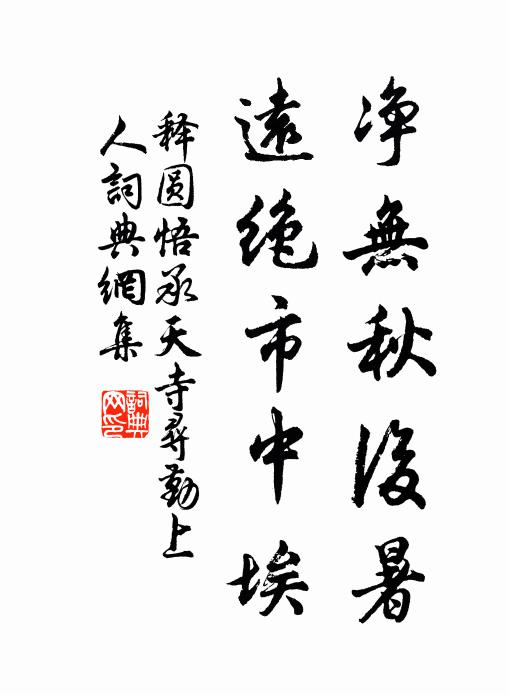 净無秋後暑
遠絶市中埃
释圆悟承天寺尋勤上
人詞典網集
詞典
网印